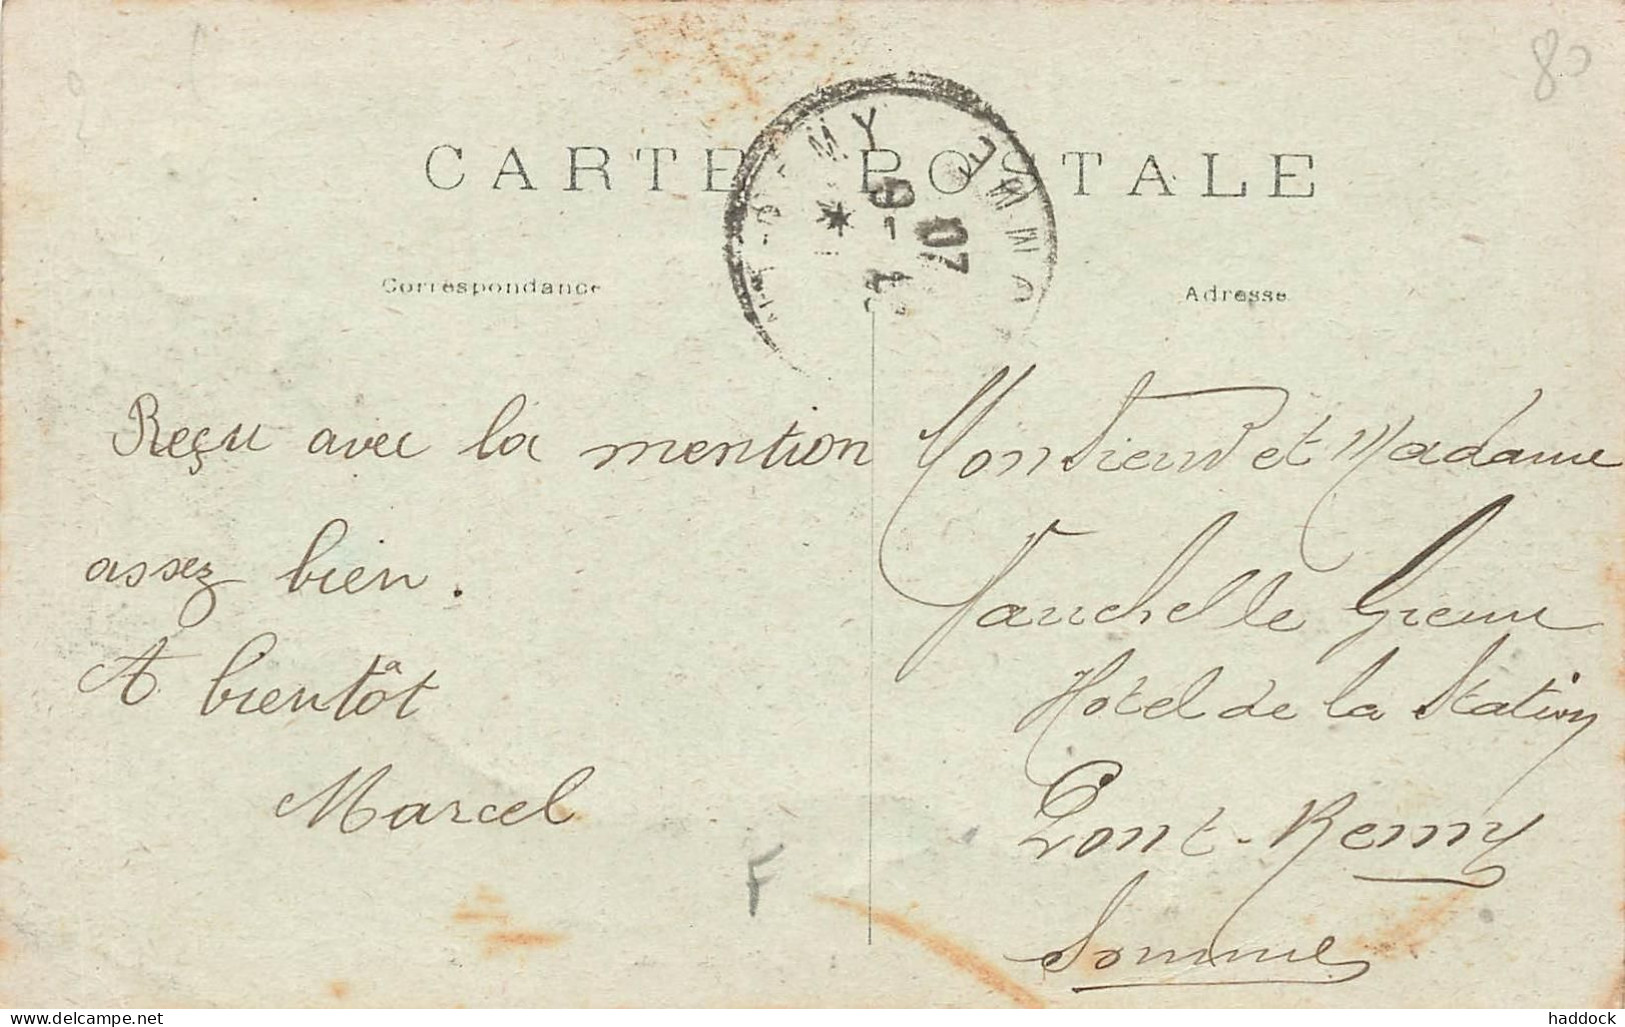 80
CARTE POSTALE
Correspondance
Adresse
MY
9-
07
SOMME
Reçu avec la mention
assez bien.
A bientôt
Marcel
F
Monsieur et Madame
Fauchelle
Hotel de la Station
Pont-Remy
Somme
delcampe.net
haddock